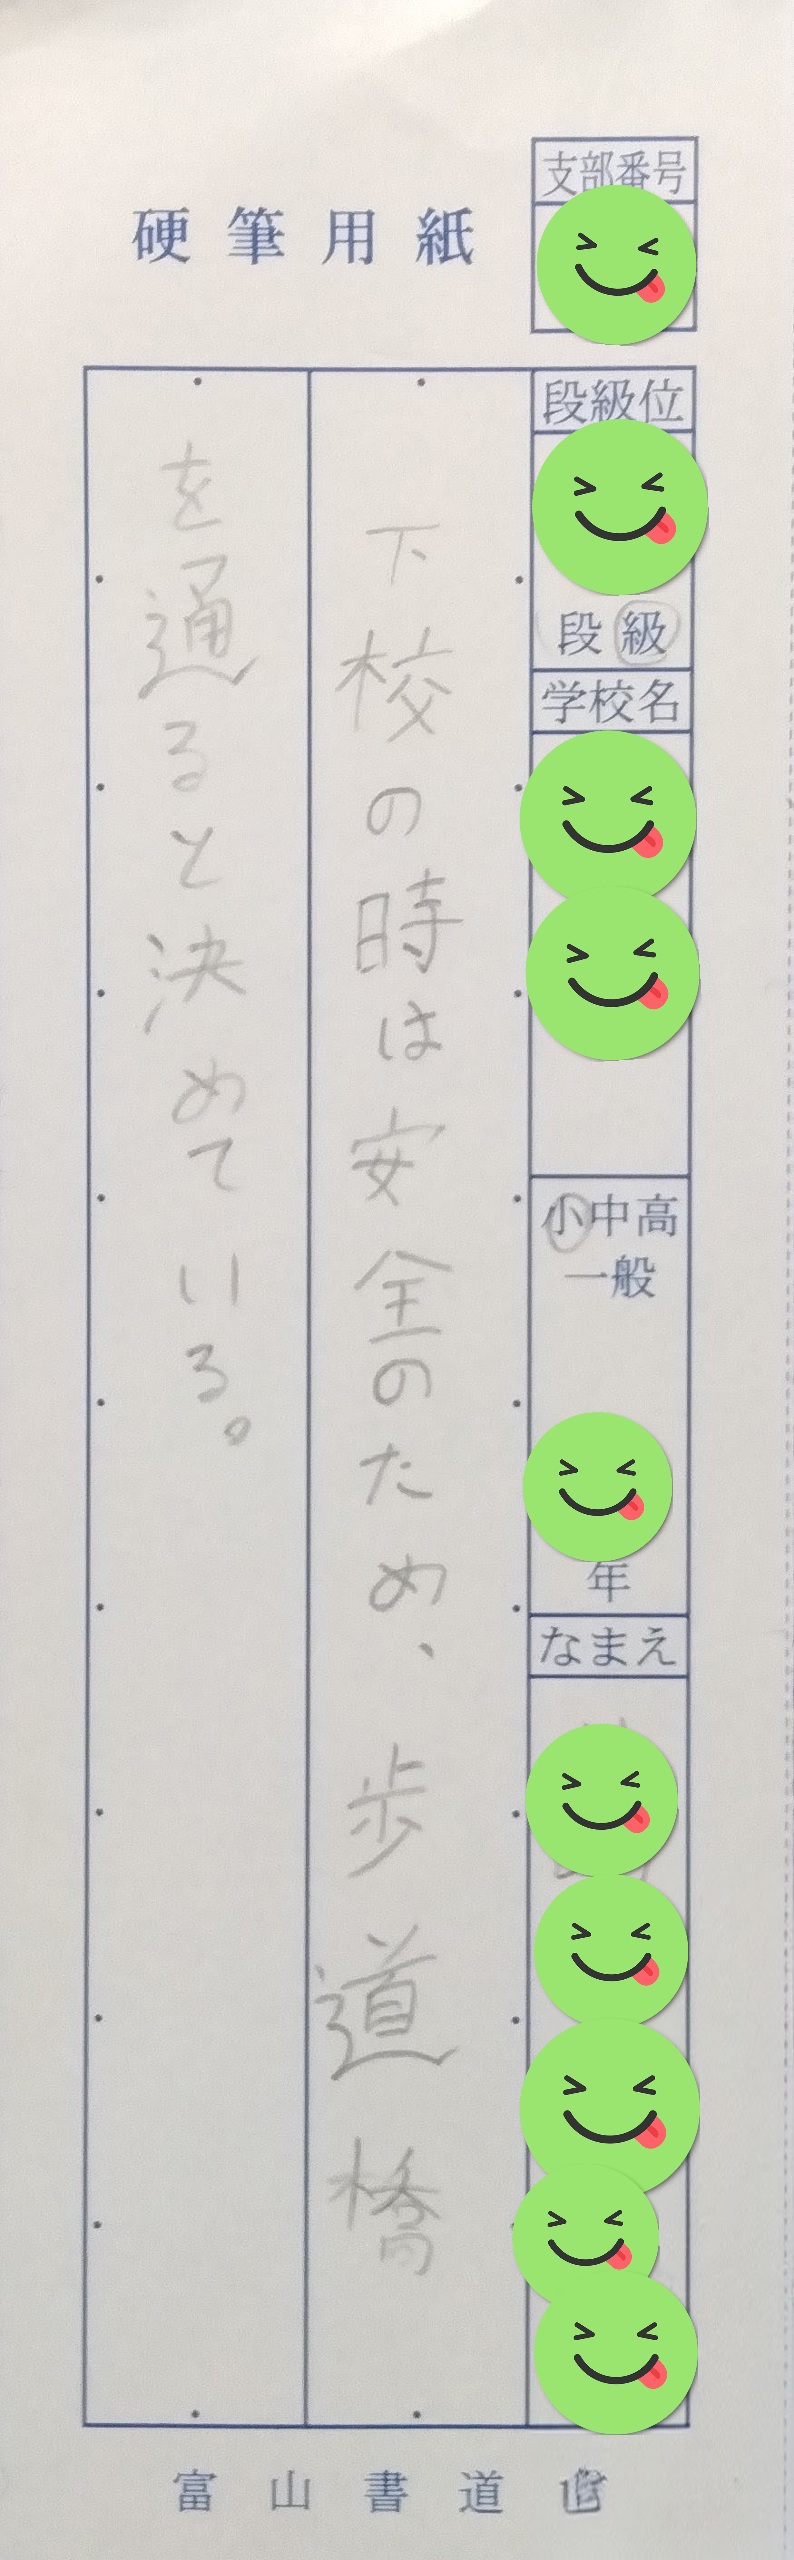 硬筆用紙
支部番号
段級位
段級
学校名
小中高
一般
年
なまえ
下校の時は安全のため、歩道橋
を通ると決めている。
富山書道